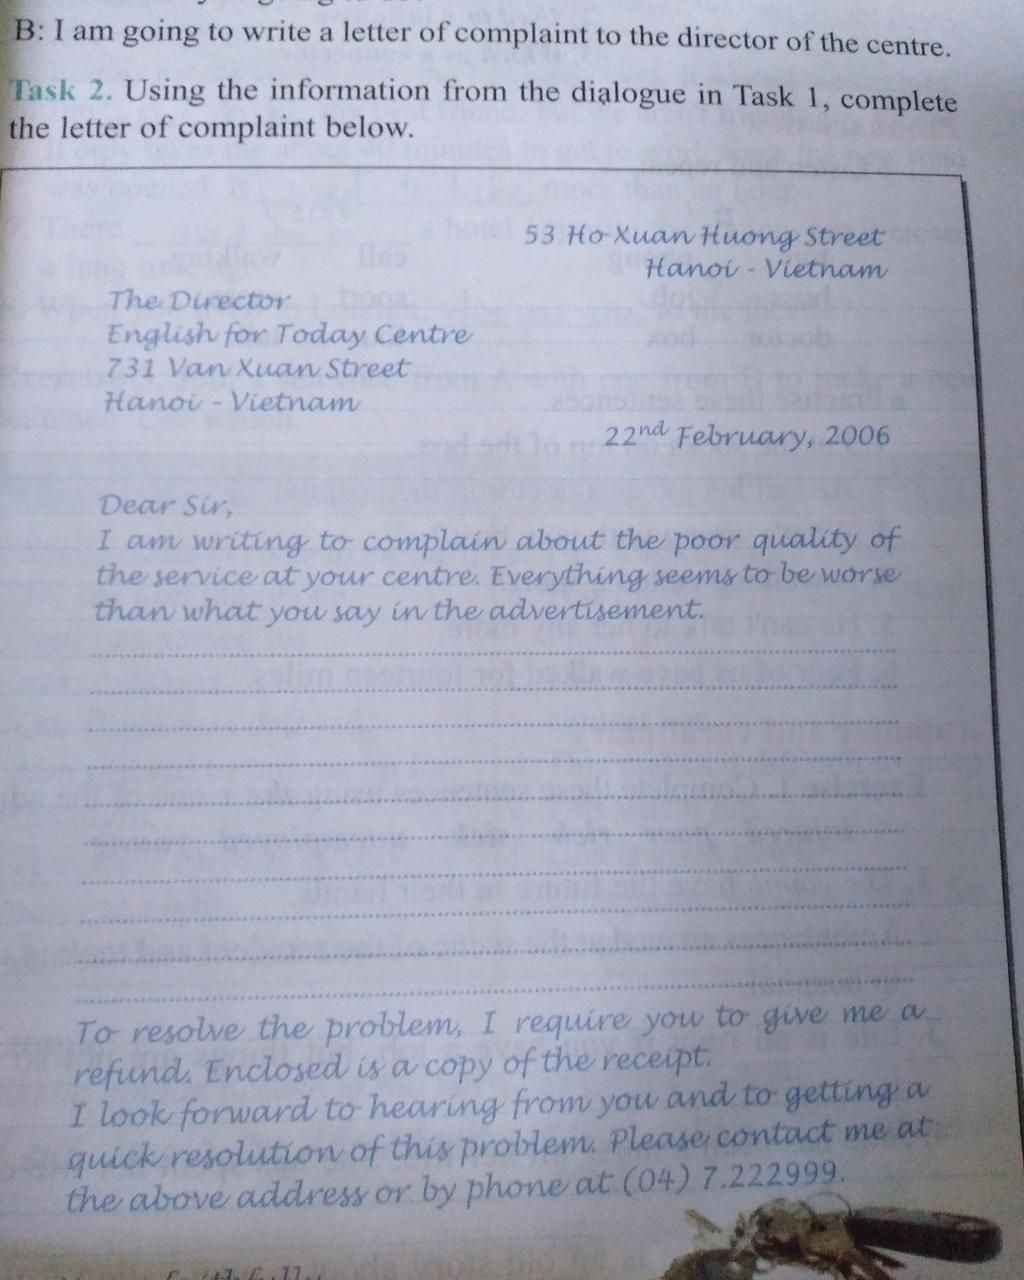 B: I am going to write a letter of complaint to the director of the centre.
Task 2. Using the information from the dialogue in Task 1, complete
the letter of complaint below.
53 Ho Xuan Huong Street
Hanoi - Vietnam
The Director
English for Today Centre
731 Van Xuan Street
Hanoi - Vietnam
22nd February, 2006
Dear Sir,
I am writing to complain about the poor quality of
the service at your centre. Everything seems to be worse
than what you say in the advertisement.
To resolve the problem, I require you to give me a
refund. Enclosed is a copy of the receipt.
I look forward to hearing from you and to getting a
quick resolution of this problem. Please contact me at
the above address or by phone at (04) 7.222999.